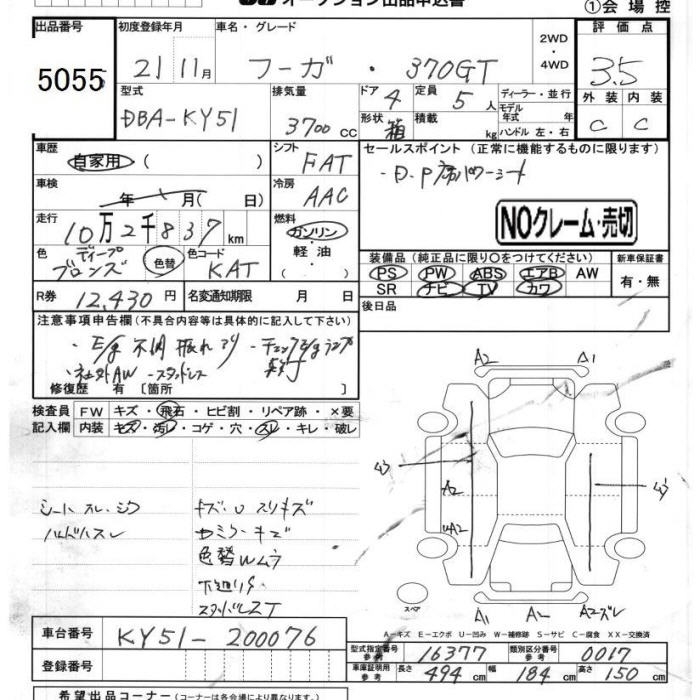 オークション出品申込書
①会場控
出品番号 初度登録年月 車名・グレード 2WD・4WD 評価点
5055 21 11月 フーガ・370GT 3.5
型式 排気量 ドア 4 定員 5人 ディーラー・並行 外装 内装
DBA-KY51 3700 CC 形状 箱 積載 kg モデル年式 年 C C
ハンドル 左・右
車歴 自家用 ( ) シフト FAT セールスポイント (正常に機能するものに限ります)
・D.P席パワーシート
車検 年 月(日) 冷房 AAC
NOクレーム・売切
走行 10万2千837 km 燃料 ガソリン・軽油・
色 ディープブロンズ 色替 色コード KAT
装備品 (純正品に限り○をつけてください) 新車保証書
PS PW ABS エアB AW 有・無
SR ナビ TV カワ
R券 12,430円 名変通知期限 月 日 後日品
注意事項申告欄 (不具合内容等は具体的に記入して下さい)
・E/g不調 振れあり ・チェックE/gランプ
・社外AW ・スタッドレス 点灯
修復歴 有 [箇所 ]
検査員 FW キズ・飛石・ヒビ割・リペア跡・×要
記入欄 内装 キズ・汚レ・コゲ・穴・スレ・キレ・破レ
A2 A1
A2
UA2
シートスレ・シワ キズ・U スリキズ
ハンドルスレ
色替Wムラ
下廻りサ
スペア
A1 A2 A2ズレ
A-キズ E-エクボ U-凹み W-補修跡 S-サビ C-腐食 XX-交換済
車台番号 KY51-200076
型式指定番号 参考 16377 類別区分番号 参考 0017
登録番号
車庫証明用 参考 長さ 494 cm 幅 184 cm 高さ 150 cm
希望出品コーナー (コーナーは各会場により異なります)